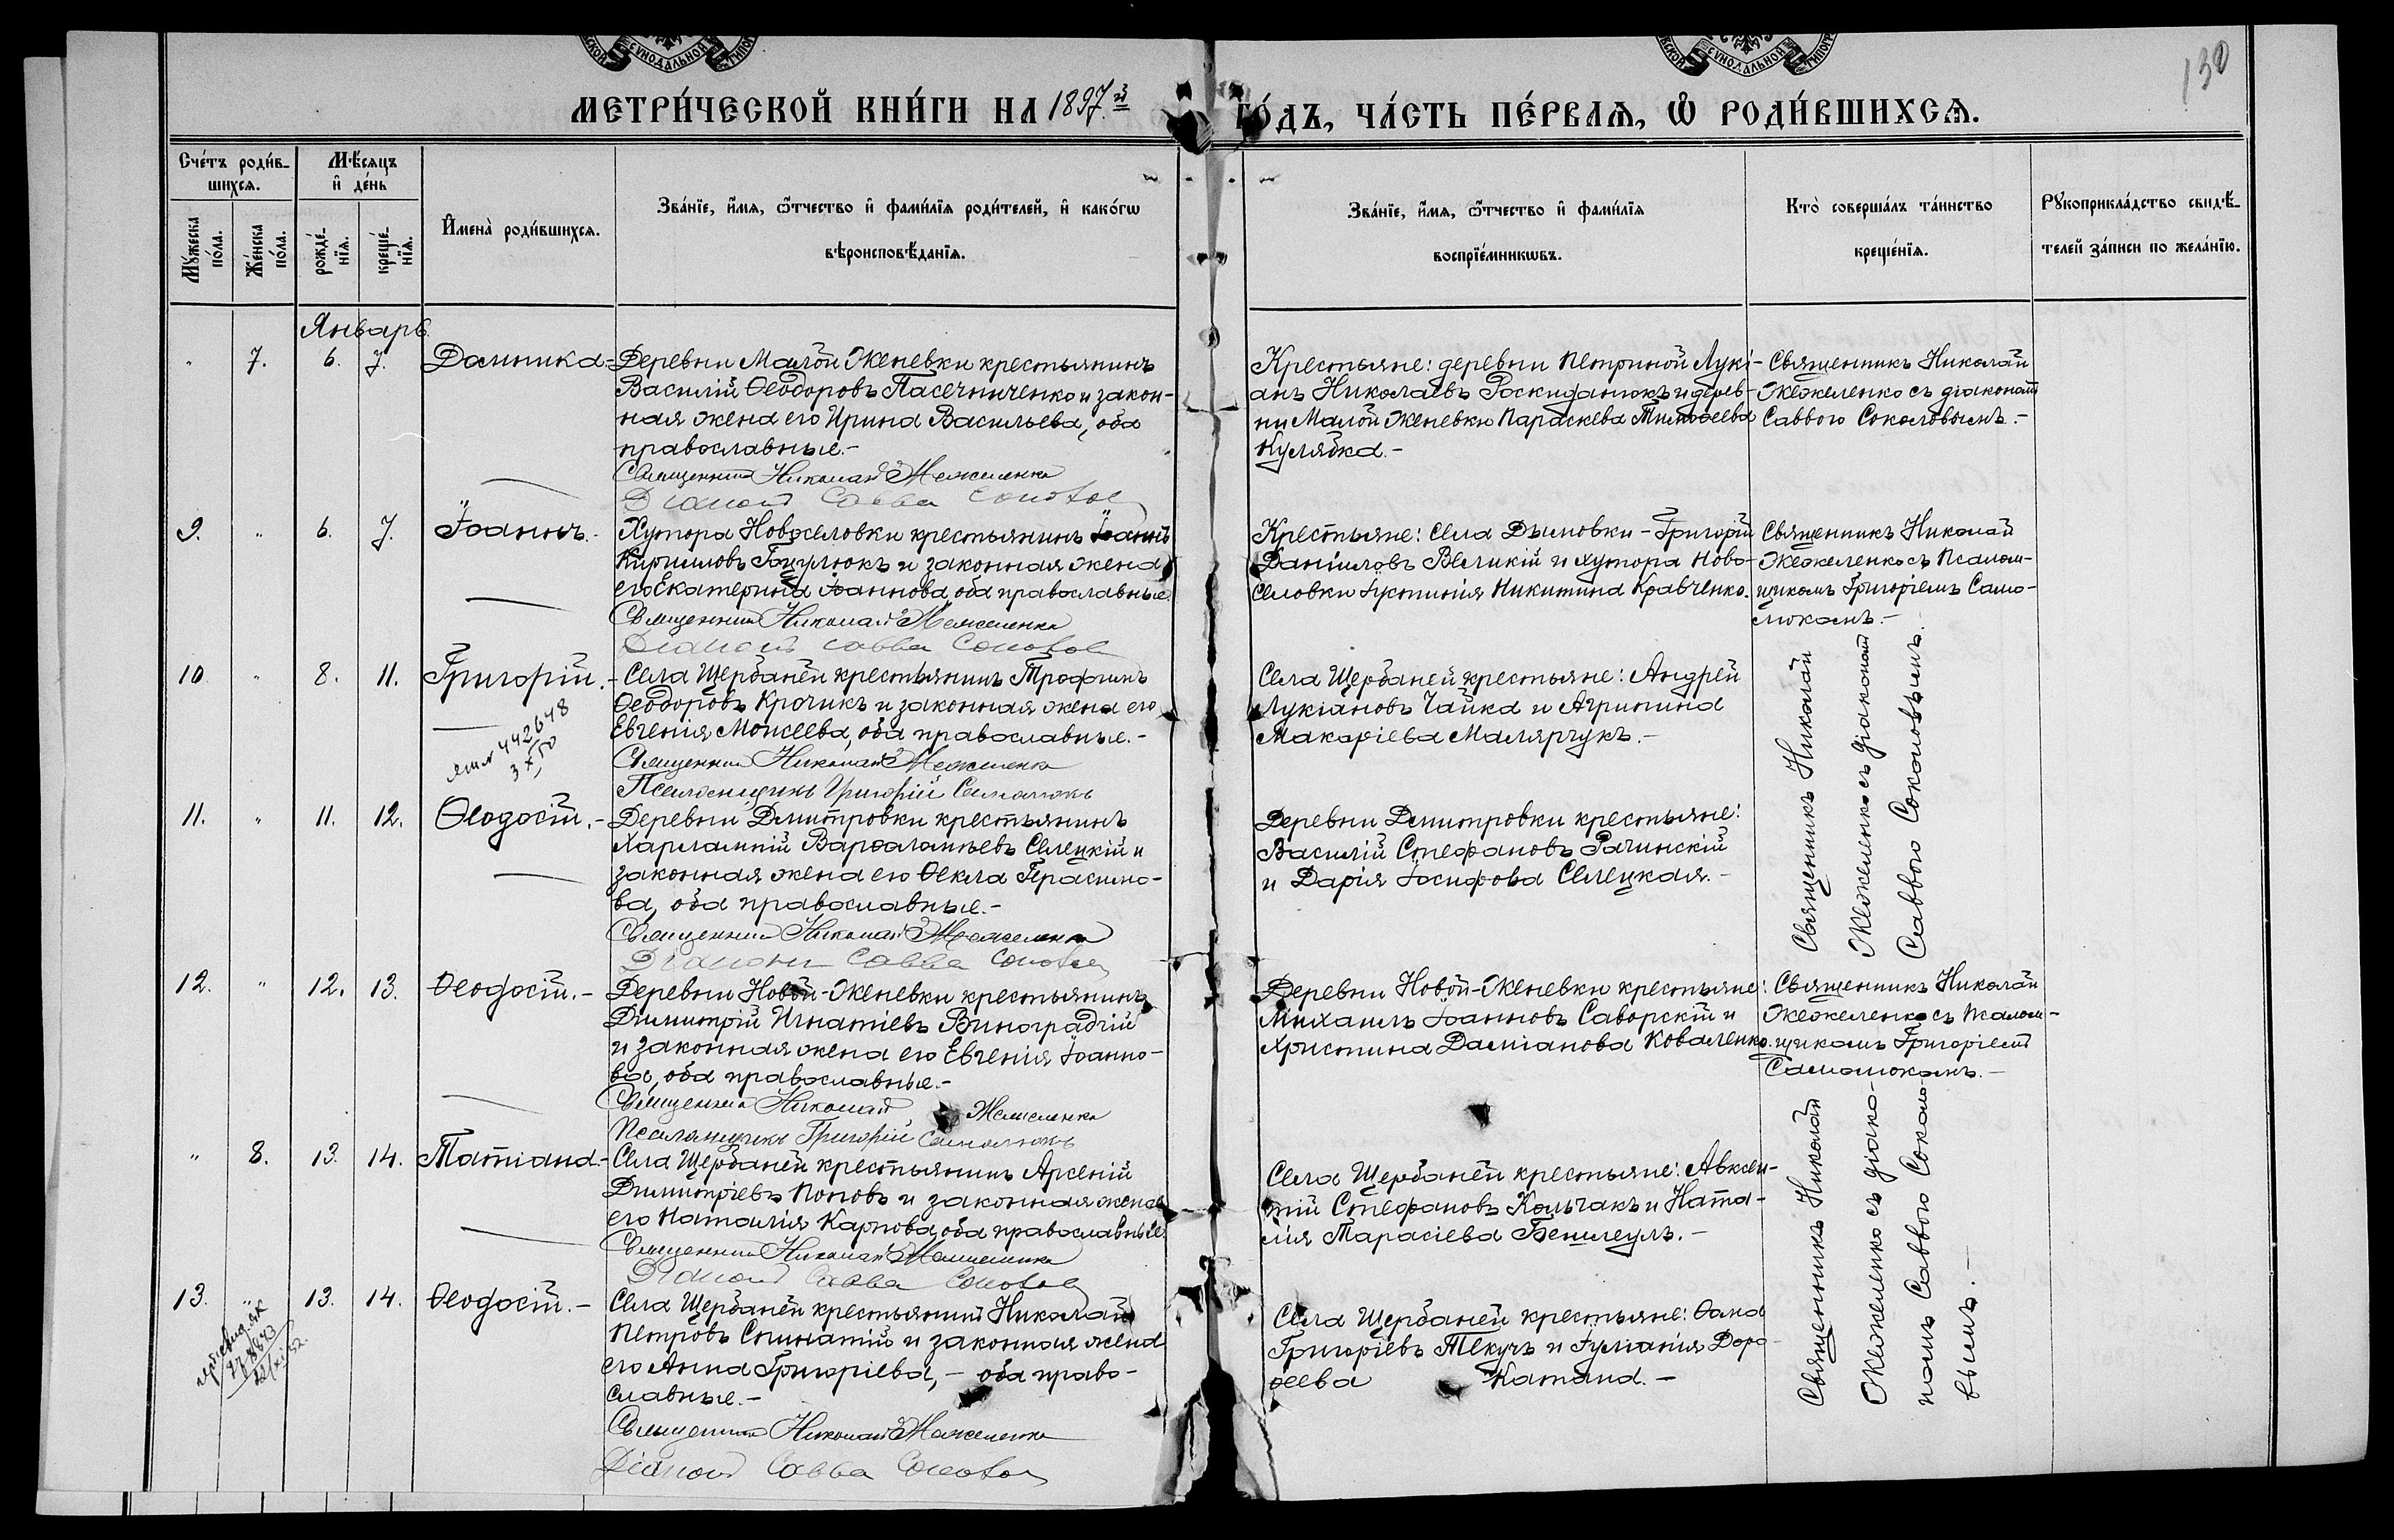 130
МЕТРИ́ЧЕСКОЙ КНИ́ГИ НА 1897.й ГО́ДЪ, ЧА́СТЬ ПЕ́РВАѦ, Ѽ РОДИ́ВШИХСѦ.
Сче́тъ роди́в-
шихсѧ.
Мѣ́сяцъ
и҆ де́нь
Мꙋ́жеска по́ла.
Же́нска по́ла.
рожде́-
нїѧ.
креще́-
нїѧ.
И҆мена̀ роди́вшихсѧ.
Зва́нїе, и҆́мѧ, ѻ҆́тчество и҆ фами́лїѧ роди́телей, и҆ како́гѡ
вѣроисповѣ́данїѧ.
Зва́нїе, и҆́мѧ, ѻ҆́тчество и҆ фами́лїѧ
воспрїе́мникѡвъ.
Кто̀ соверша́лъ та́инство
креще́нїѧ.
Рꙋкоприкла́дство свидѣ́-
телей за́писи по жела́нїю.
Январь.
" 7. 6. 7. Домника-
Деревни Малой Женевки крестьянинъ
Василій Ѳеодоровъ Пасечниченко и закон-
ная жена его Ирина Васильева, оба
православные.-
Священникъ Николай Межеленко
Діаконъ Савва Соколов
Крестьяне: деревни Петриной Лукі-
анъ Николаевъ Роскиданюкъ и дерев-
ни Малой Женевки Параскева Тимоѳеева
Кулябка.-
Священникъ Николай
Межеленко съ діакономъ
Саввою Соколовымъ.-
9. " 6. 7. Іоаннъ.-
Хутора Новоселовки крестьянинъ Іоаннъ
Кирилловъ Гоцулюкъ и законная жена
его Екатерина Іоаннова, оба православные.
Священникъ Николай Межеленко
Діаконъ Савва Соколов
Крестьяне: села Дымовки - Григорій
Даніиловъ Великій и хутора Ново-
селовки Іустинія Никитина Кравченко.
Священникъ Николай
Межеленко съ Псалом-
щикомъ Григоріемъ Само-
люкомъ.-
10 " 8. 11. Григорій.-
442648
Села Щербаней крестьянинъ Трофимъ
Ѳеодоровъ Крочикъ и законная жена его
Евгенія Моисеева, оба православные.-
Священникъ Николай Межеленко
Псаломщикъ Григорій Самолюкъ
Села Щербаней крестьяне: Андрей
Лукіановъ Чайка и Агрипина
Макаріева Малярчукъ.-
Священникъ Николай
Межеленко съ діакономъ
Саввою Соколовымъ.
11. " 11. 12. Ѳеодосій.-
Деревни Дмитровки крестьянинъ
Харлампій Варѳаломеевъ Селецкій и
законная жена его Ѳекла Герасимо-
ва, оба православные.-
Священникъ Николай Межеленко
Діаконъ Савва Соколов
Деревни Дмитровки крестьяне:
Василій Стефановъ Рачинскій
и Дарія Іосифова Селецкая.-
12. " 12. 13. Ѳеодосій.-
Деревни Новой-Женевки крестьянинъ
Димитрій Игнатіевъ Виноградчій
и законная жена его Евгенія Іоанно-
ва, оба православные.-
Священникъ Николай Межеленко
Псаломщикъ Григорій Самолюкъ
Деревни Новой-Женевки крестьяне:
Михаилъ Іоанновъ Саворскій и
Христина Даміанова Коваленко.
Священникъ Николай
Межеленко съ Псалом-
щикомъ Григоріемъ
Самолюкомъ.-
" 8. 13. 14. Татіана.-
Села Щербаней крестьянинъ Арсеній
Димитріевъ Поповъ и законная жена
его Наталія Карпова, оба православные.
Священникъ Николай Межеленко
Діаконъ Савва Соколов
Села Щербаней крестьяне: Авксен-
тій Стефановъ Кольчакъ и Ната-
лія Тарасіева Бешлеулъ.-
Священникъ Николай
Межеленко съ діако-
номъ Саввою Соколо-
вымъ.-
13. " 13. 14. Ѳеодосій.-
Села Щербаней крестьянинъ Николай
Петровъ Спинатій и законная жена
его Анна Григоріева,- оба право-
славные.-
Священникъ Николай Межеленко
Діаконъ Савва Соколов
Села Щербаней крестьяне: Ѳома
Григоріевъ Текучъ и Іуліанія Доро-
ѳеева Катана.-